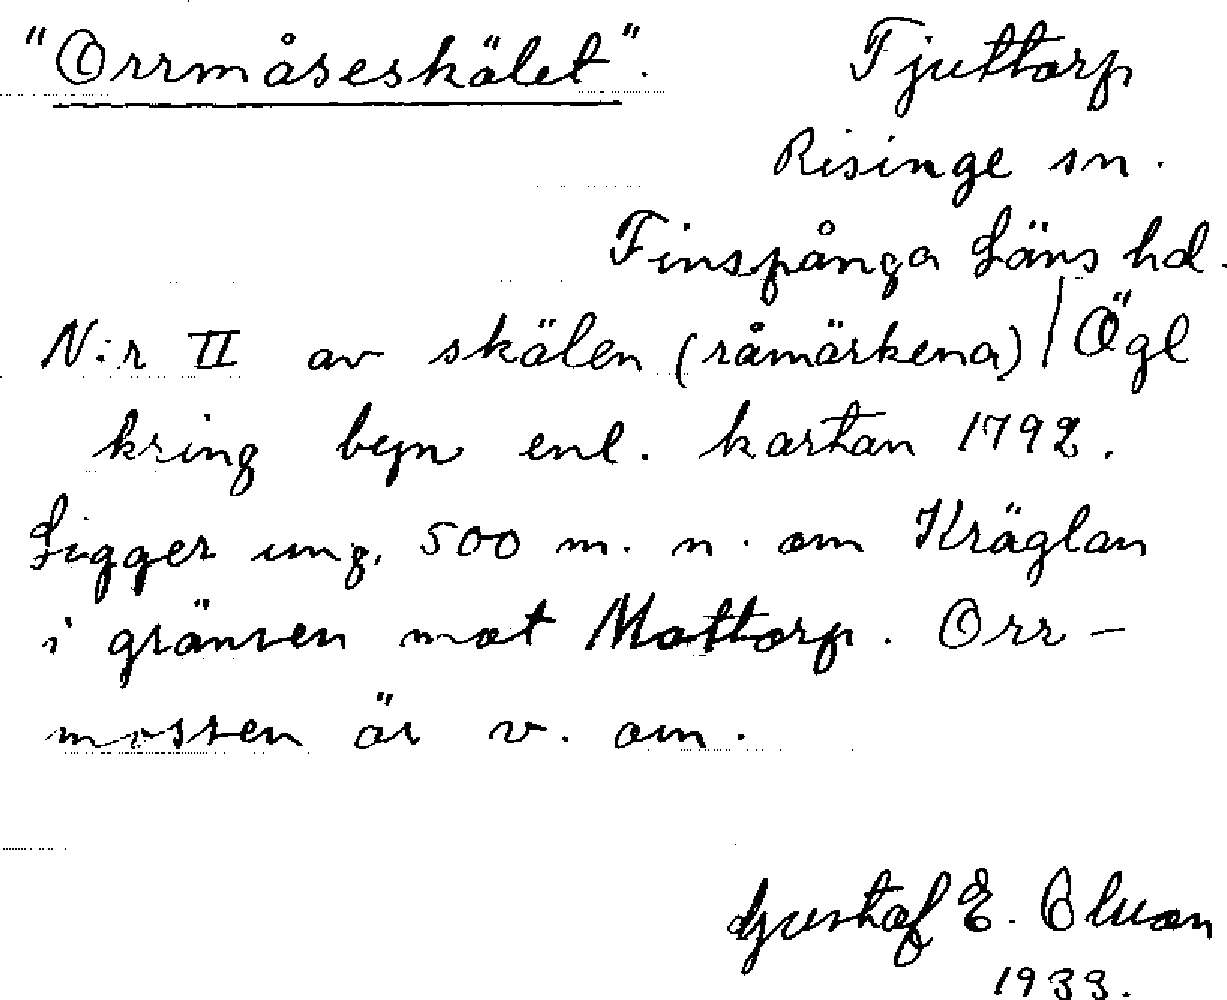 "Orrmåseskälet".
Tjuttorp
Risinge sn.
Finspånga Läns hd.
N:r II av skälen (råmärkena) / Ögl
kring byn enl. kartan 1792.
Ligger ung. 500 m. n. om Kräglan
i gränsen mot Mattorp. Orr-
mossen är v. om.
Gustaf E.
1933.